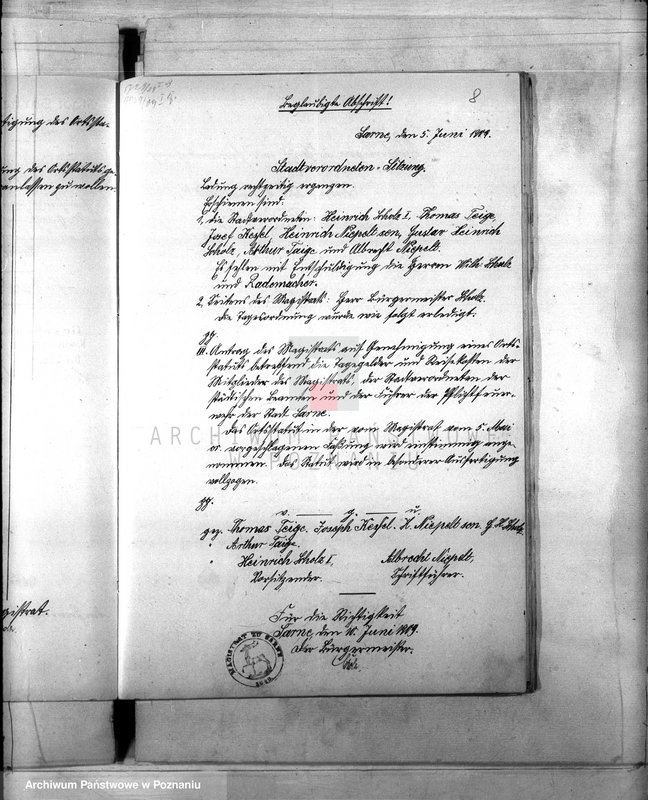 tigung des Ortssta-
ung des Ortsstatuts ge-
anlassen zu wollen.
gistrat.
8
Beglaubigte Abschrift!
Sarne, den 5. Juni 1909.
Stadtverordneten-Sitzung.
Ladung rechtzeitig ergangen.
Erschienen sind:
1. die Stadtverordneten: Heinrich Scholz I. Thomas Teige,
Josef Kessel, Heinrich Niepelt sen, Gustav Heinrich
Scholz, Arthur Taige und Albrecht Niepelt.
Es fehlen mit Entschuldigung die Herren Wilh. Scholz
und Rademacher.
2. Seitens des Magistrats: Herr Bürgermeister Scholz.
Die Tagesordnung wurde wie folgt erledigt:
pp.
III. Antrag des Magistrats auf Genehmigung eines Orts-
statuts betreffend die Tagegelder und Reisekosten der
Mitglieder des Magistrats, der Stadtverordneten der
städtischen Beamten und der Führer der Pflichtfeuer-
wehr der Stadt Sarne.
Das Ortsstatut in der vom Magistrat vom 5. Mai
cr. vorgeschlagenen Fassung wird einstimmig ange-
nommen. Das Statut wird in besonderer Ausfertigung
vollzogen.
pp.
v. g. u.
gez. Thomas Teige. Joseph Kessel. H. Niepelt sen. G. H. Scholz.
" Arthur Taige.
" Heinrich Scholz I, Albrecht Niepelt,
Vorsitzender. Schriftführer.
Für die Richtigkeit
Sarne, den 10. Juni 1909.
Der Bürgermeister.
Scholz.
MAGISTRAT ZU SARNE
ARCHIWUM PAŃSTWOWE
W POZNANIU
Archiwum Państwowe w Poznaniu